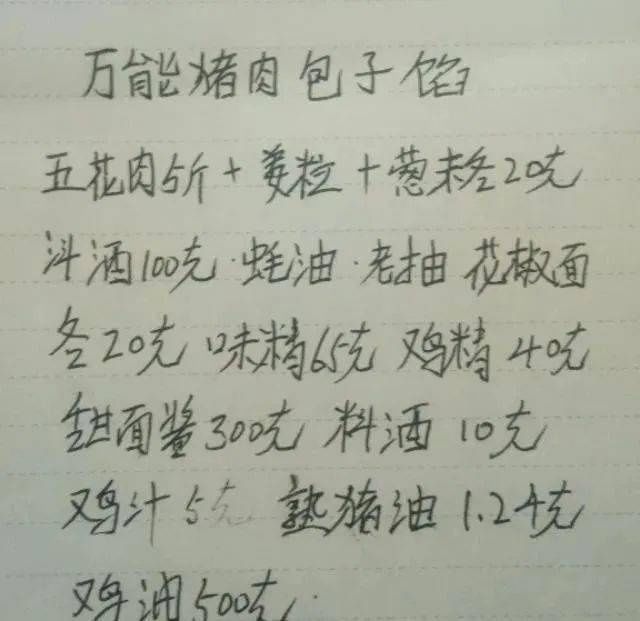 万能猪肉包子馅
五花肉5斤+姜粒+葱末各20克
料酒100克·蚝油·老抽 花椒面
各20克 味精65克 鸡精40克
甜面酱300克 料酒10克
鸡汁5克 熟猪油1.24克
鸡油500克